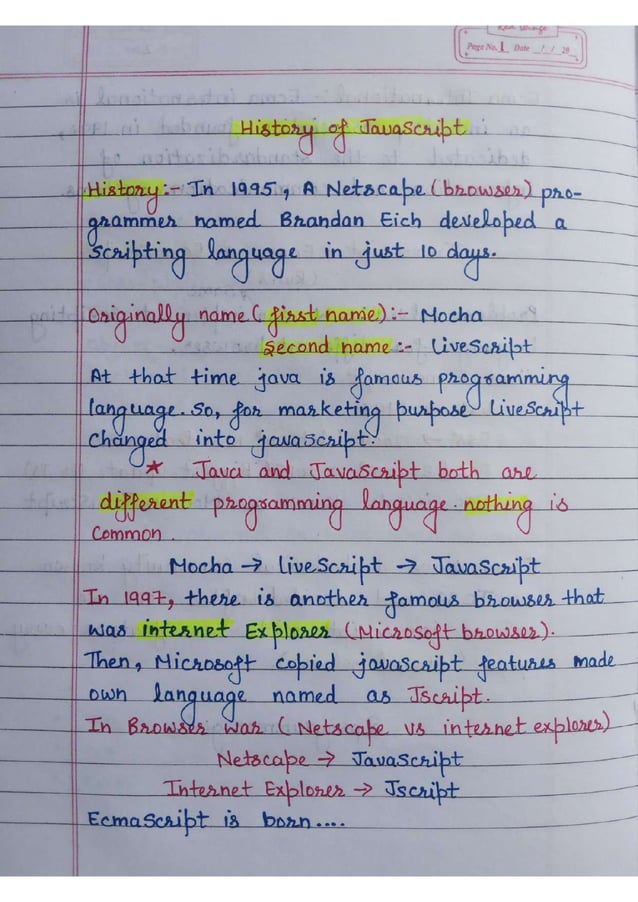 Page No. 1 Date / / 20
History of JavaScript
History:- In 1995, A Netscape (browser) pro-
grammer named Brandan Eich developed a
Scripting language in just 10 days.
Originally name (first name):- Mocha
Second name:- LiveScript
At that time java is famous programming
language. So, for marketing purpose LiveScript
Changed into javascript.
★ Java and JavaScript both are
different programming language. nothing is
Common.
Mocha → liveScript → JavaScript
In 1997, there is another famous browser that
was internet Explorer (Microsoft browser).
Then, Microsoft copied javascript features made
own language named as Jscript.
In Browser War (Netscape vs internet explorer)
Netscape → JavaScript
Internet Explorer → Jscript
EcmaScript is born....